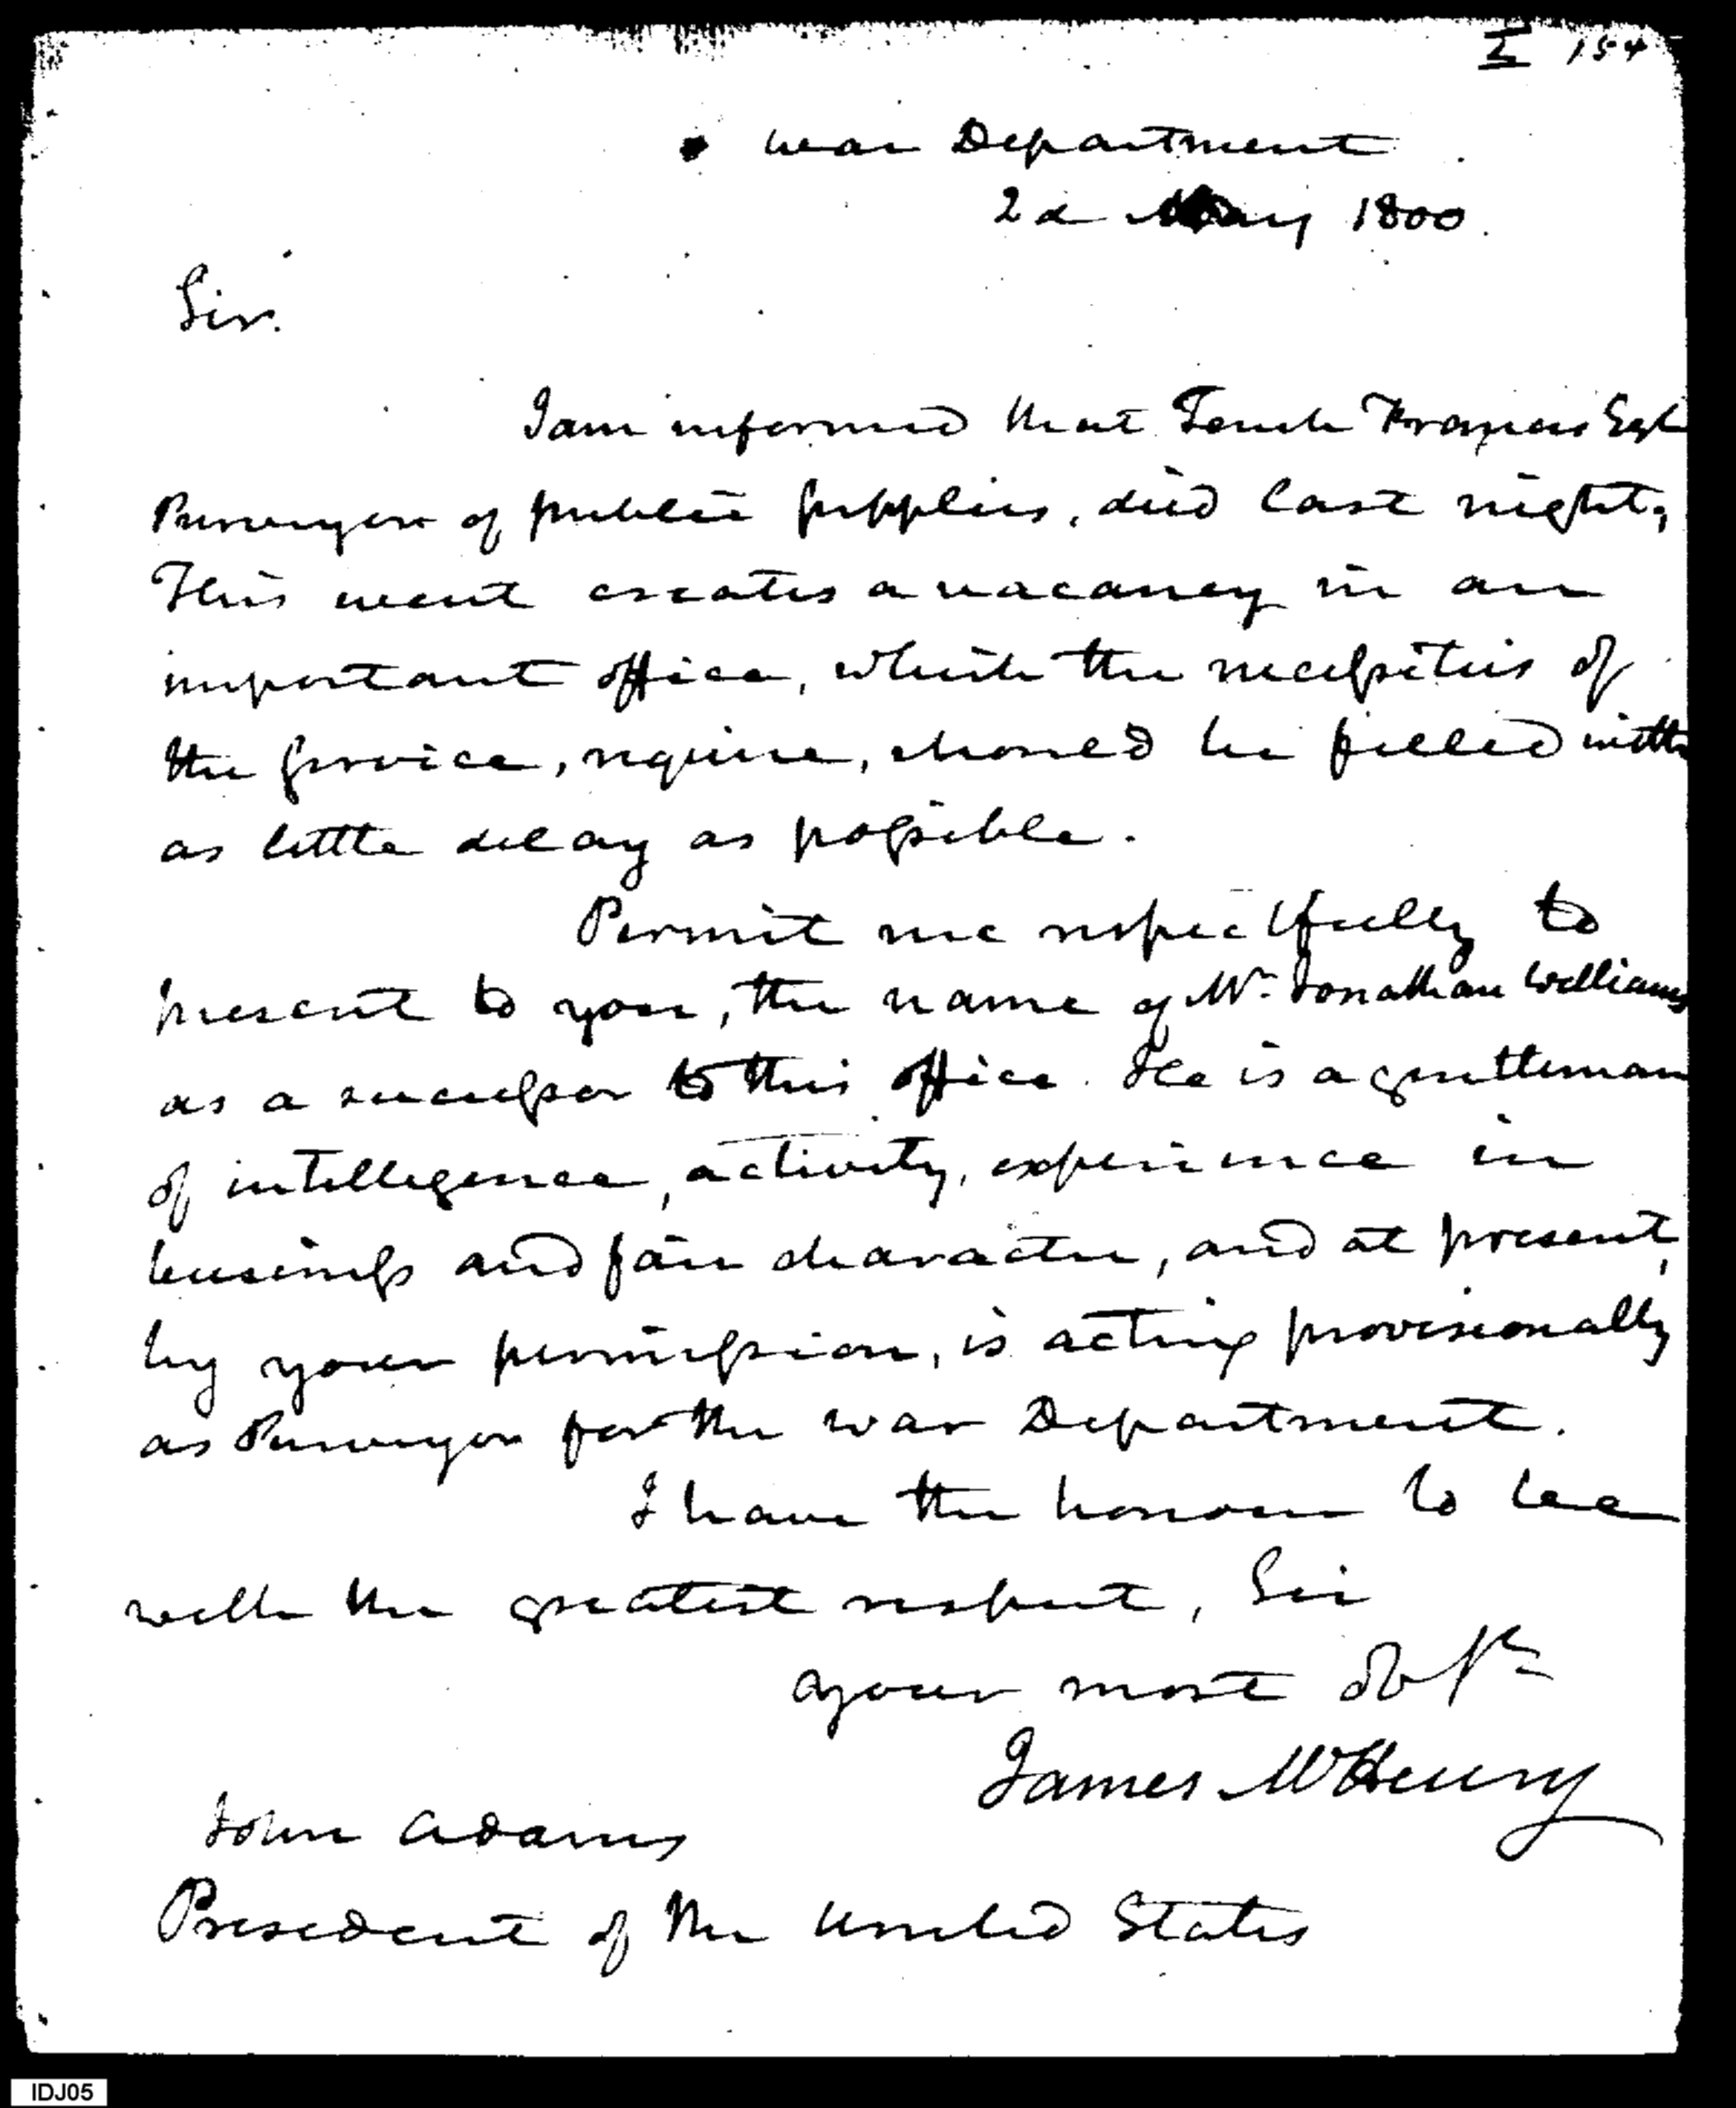 I 154
War Department
2d May 1800.
Sir.
I am informed that Tench Francis Esq
Purveyor of public supplies, died last night;
This event creates a vacancy in an
important office, which the necessities of
the service, require, should be filled with
as little delay as possible.
Permit me respectfully to
present to you, the name of Mr. Jonathan Williams
as a successor to this office. He is a gentleman
of intelligence, activity, experience in
business and fair character, and at present,
by your permission, is acting provisionally
as Purveyor for the war Department.
I have the honour to be
with the greatest respect, Sir
your most obt
James McHenry
John Adams
President of the United States
IDJ05